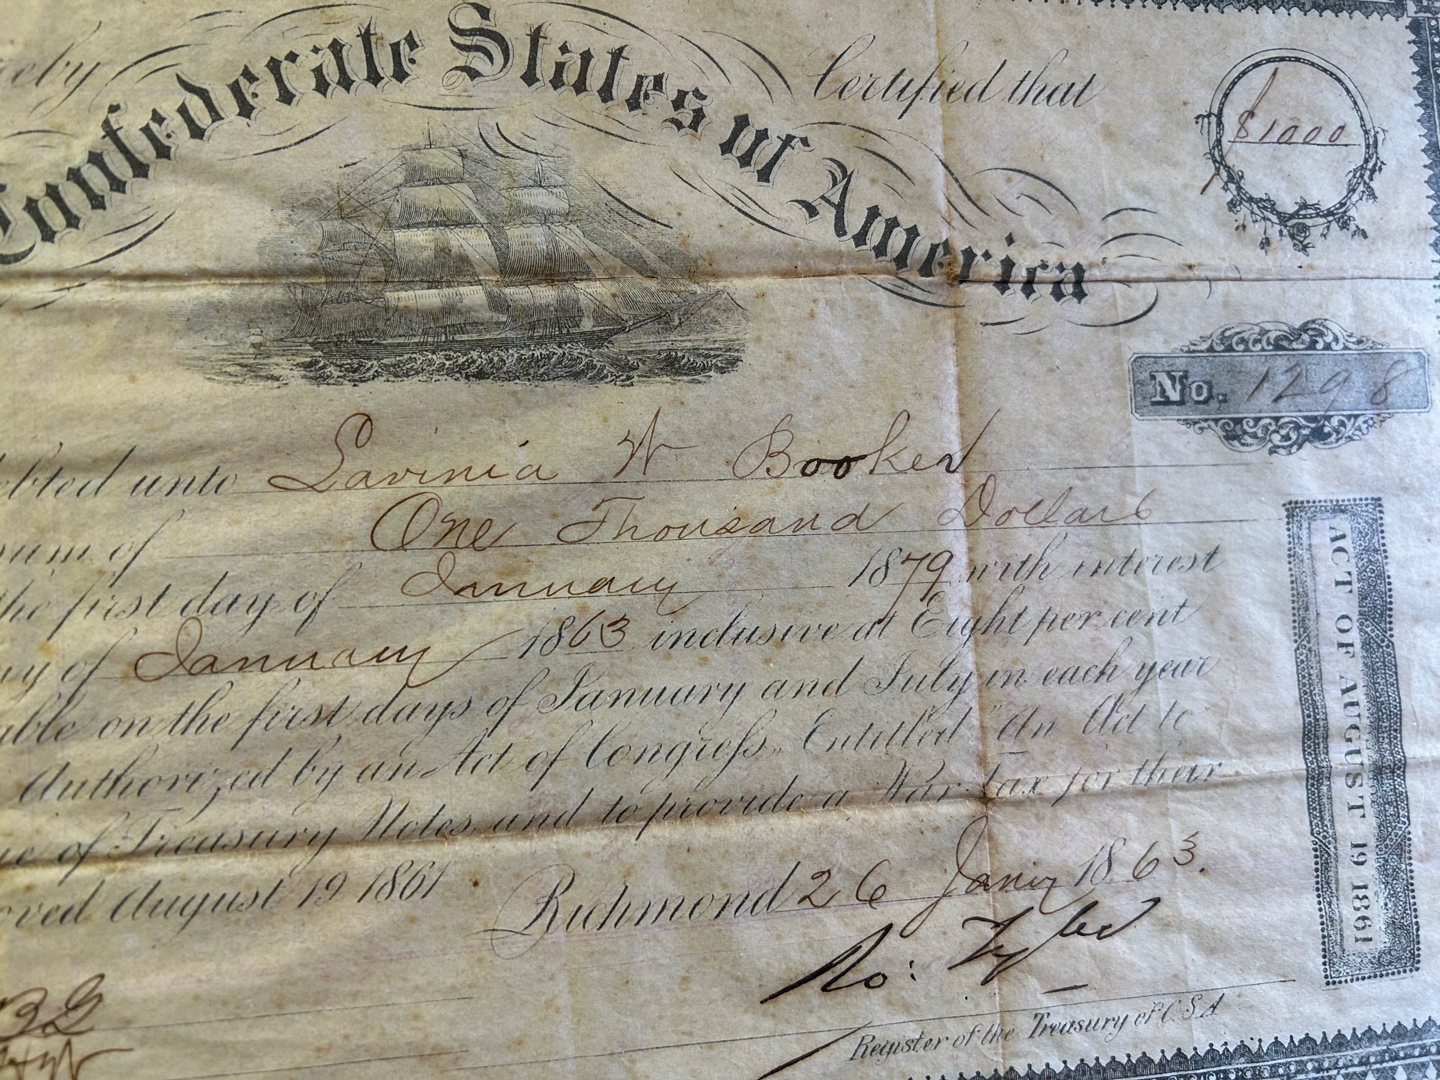 reby
Confederate States of America
Certified that
$1000
No. 1298
ebted unto Lavinia W Booker
sum of One Thousand Dollars
the first day of January 1879 with interest
ay of January 1863 inclusive at Eight per cent
able on the first days of January and July in each year
Authorized by an Act of Congress, Entitled "An Act to
ue of Treasury Notes and to provide a War tax for their
oved August 19 1861
Richmond 26 Jany 1863.
Ro: Tyler
Register of the Treasury of C.S.A
ACT OF AUGUST 19 1861